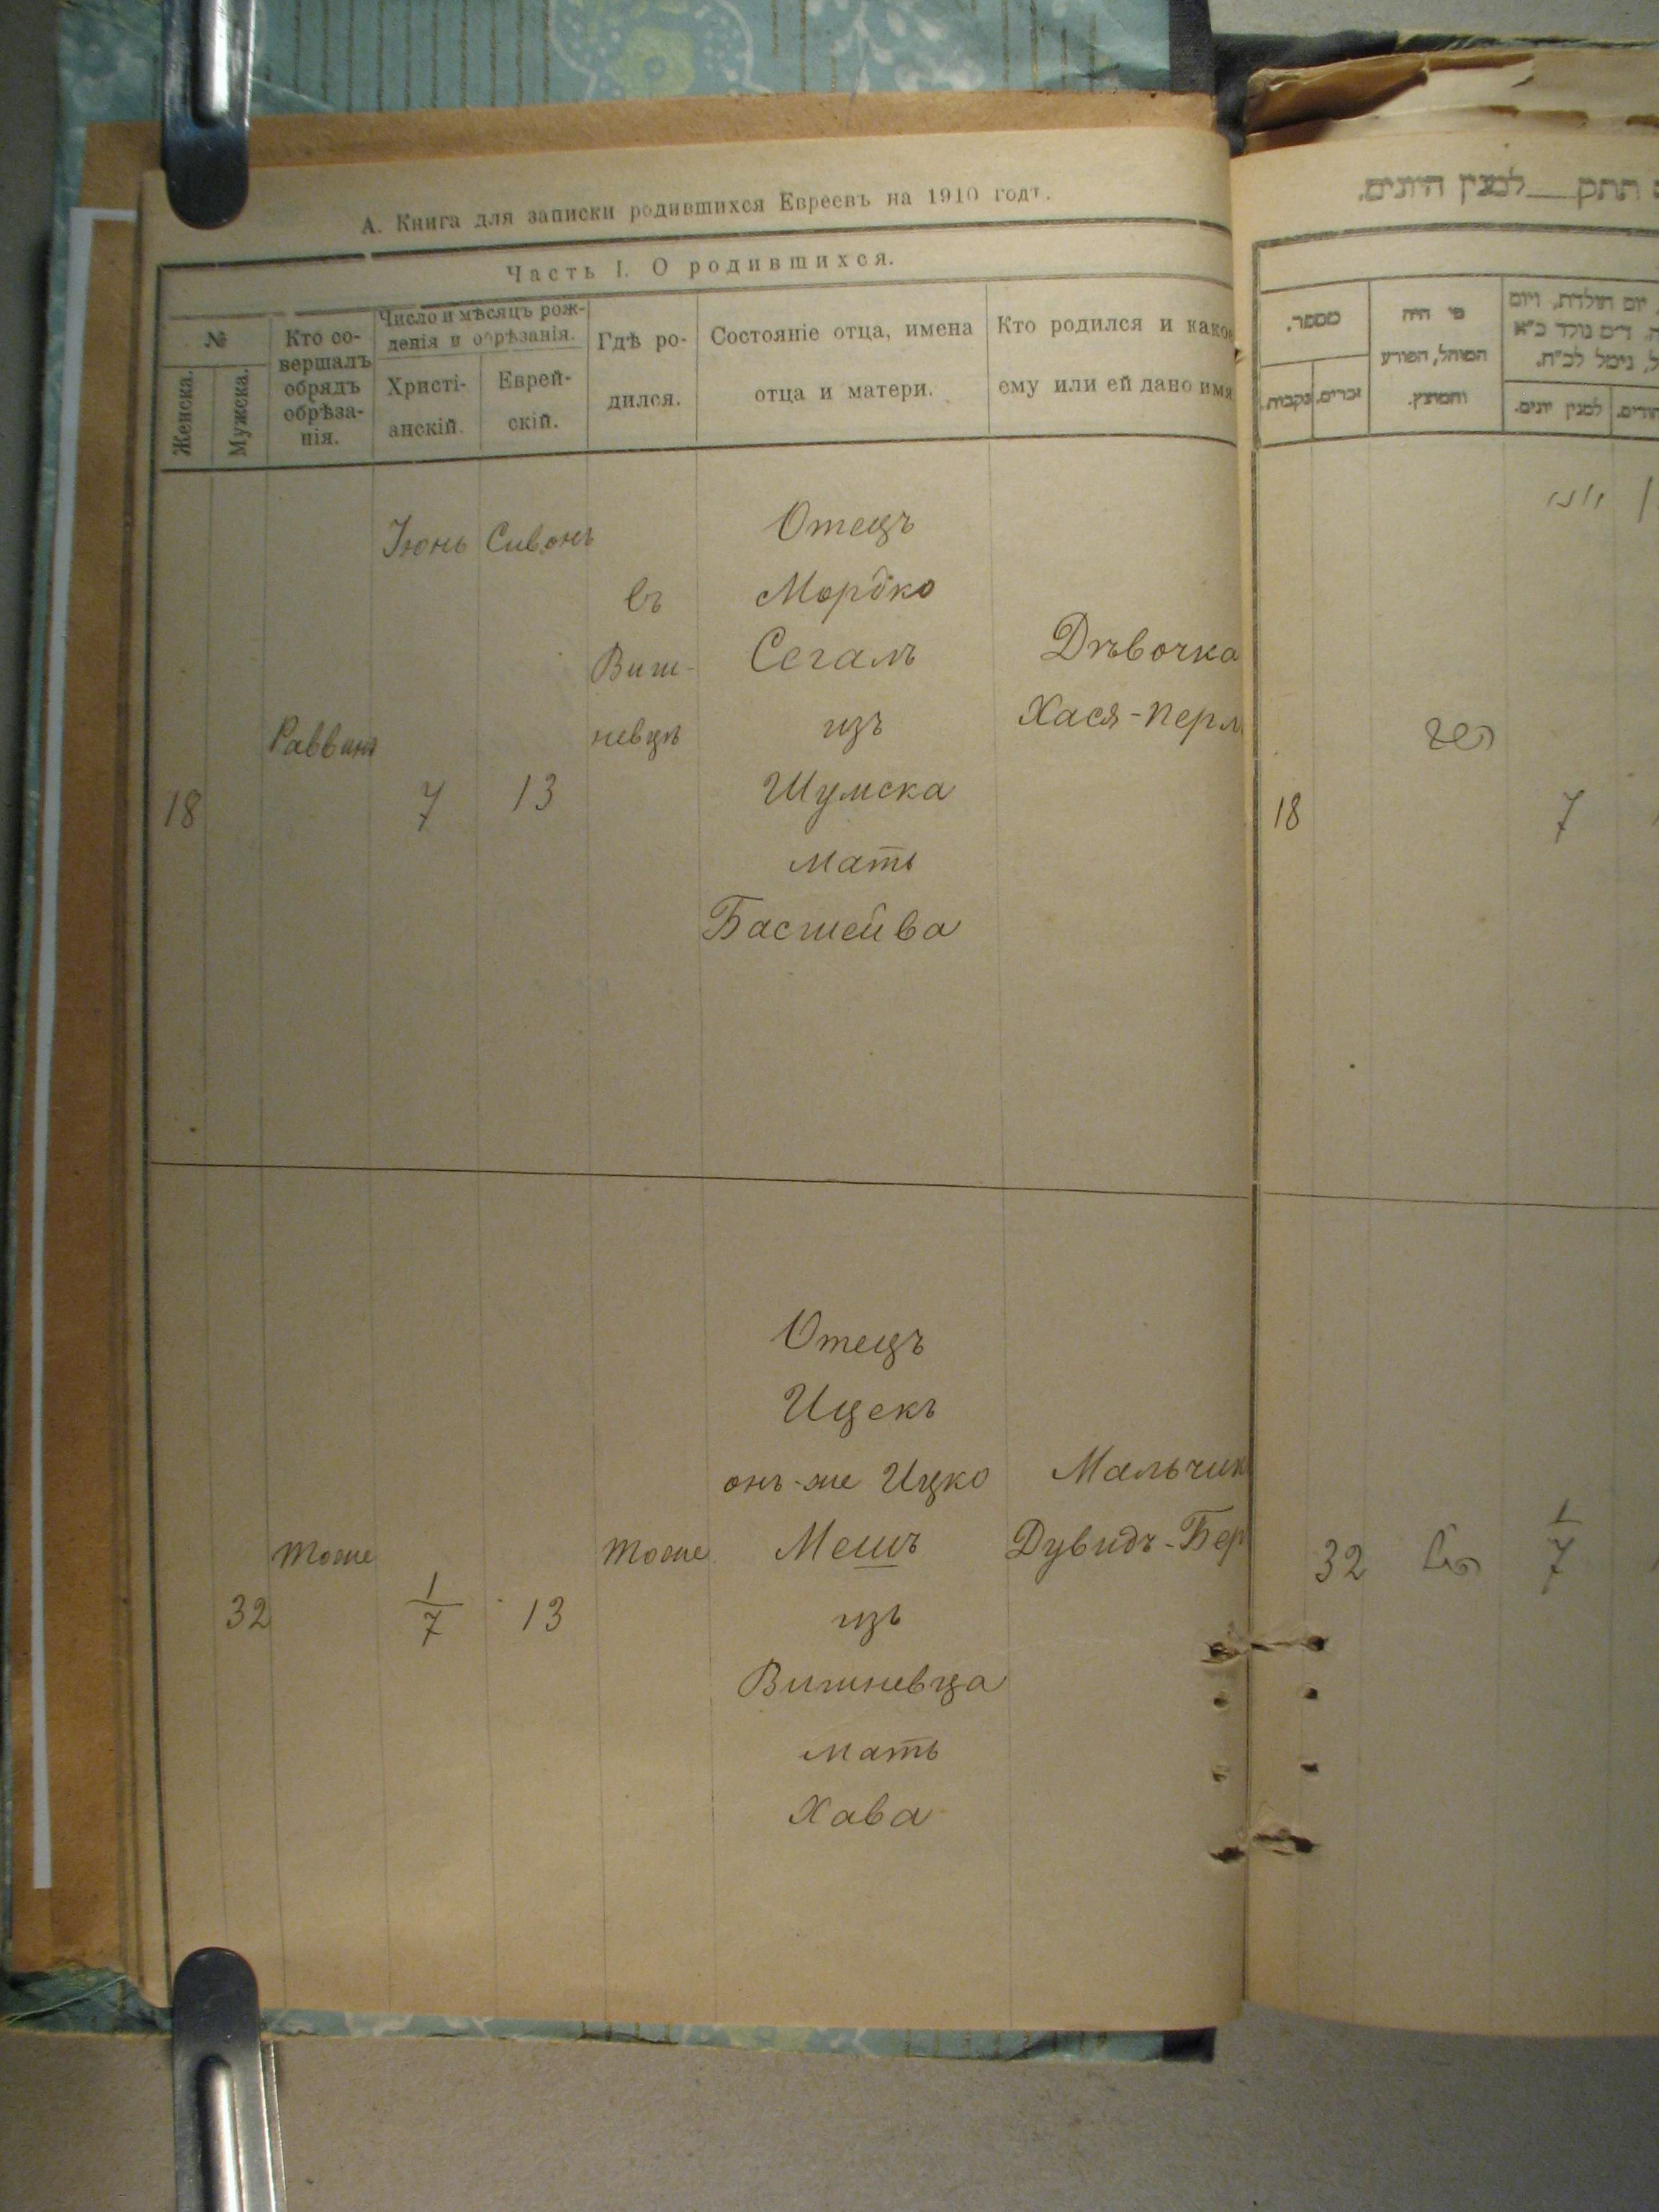 А. Книга для записки родившихся Евреевъ на 1910 годъ.
Часть I. О родившихся.
№
Женска.
Мужска.
Кто со-
вершалъ
обрядъ
обрѣза-
нія.
Число и мѣсяцъ рож-
денія и обрѣзанія.
Христі-
анскій.
Еврей-
скій.
Гдѣ ро-
дился.
Состояніе отца, имена
отца и матери.
Кто родился и како
ему или ей дано имя
18
Раввинъ
Іюнь
7
Сивонъ
13
въ
Виш-
невцѣ
Отецъ
Мордко
Сегалъ
изъ
Шумска
мать
Басшейва
Дѣвочка
Хася-Перл
32
тоже
1/7
13
тоже
Отецъ
Ицекъ
онъ-же Ицко
Мешъ
изъ
Вишневца
мать
Хава
Мальчик
Дувидъ-Бер
תתק__למנין היונים.
מספר.
זכרים.
נקבות.
מי היה
המוהל, הפורע
והמוצץ.
יום הולדת, ויום
למנין יונים.
יוני
18
הנ"ל
7
32
הנ"ל
1/7